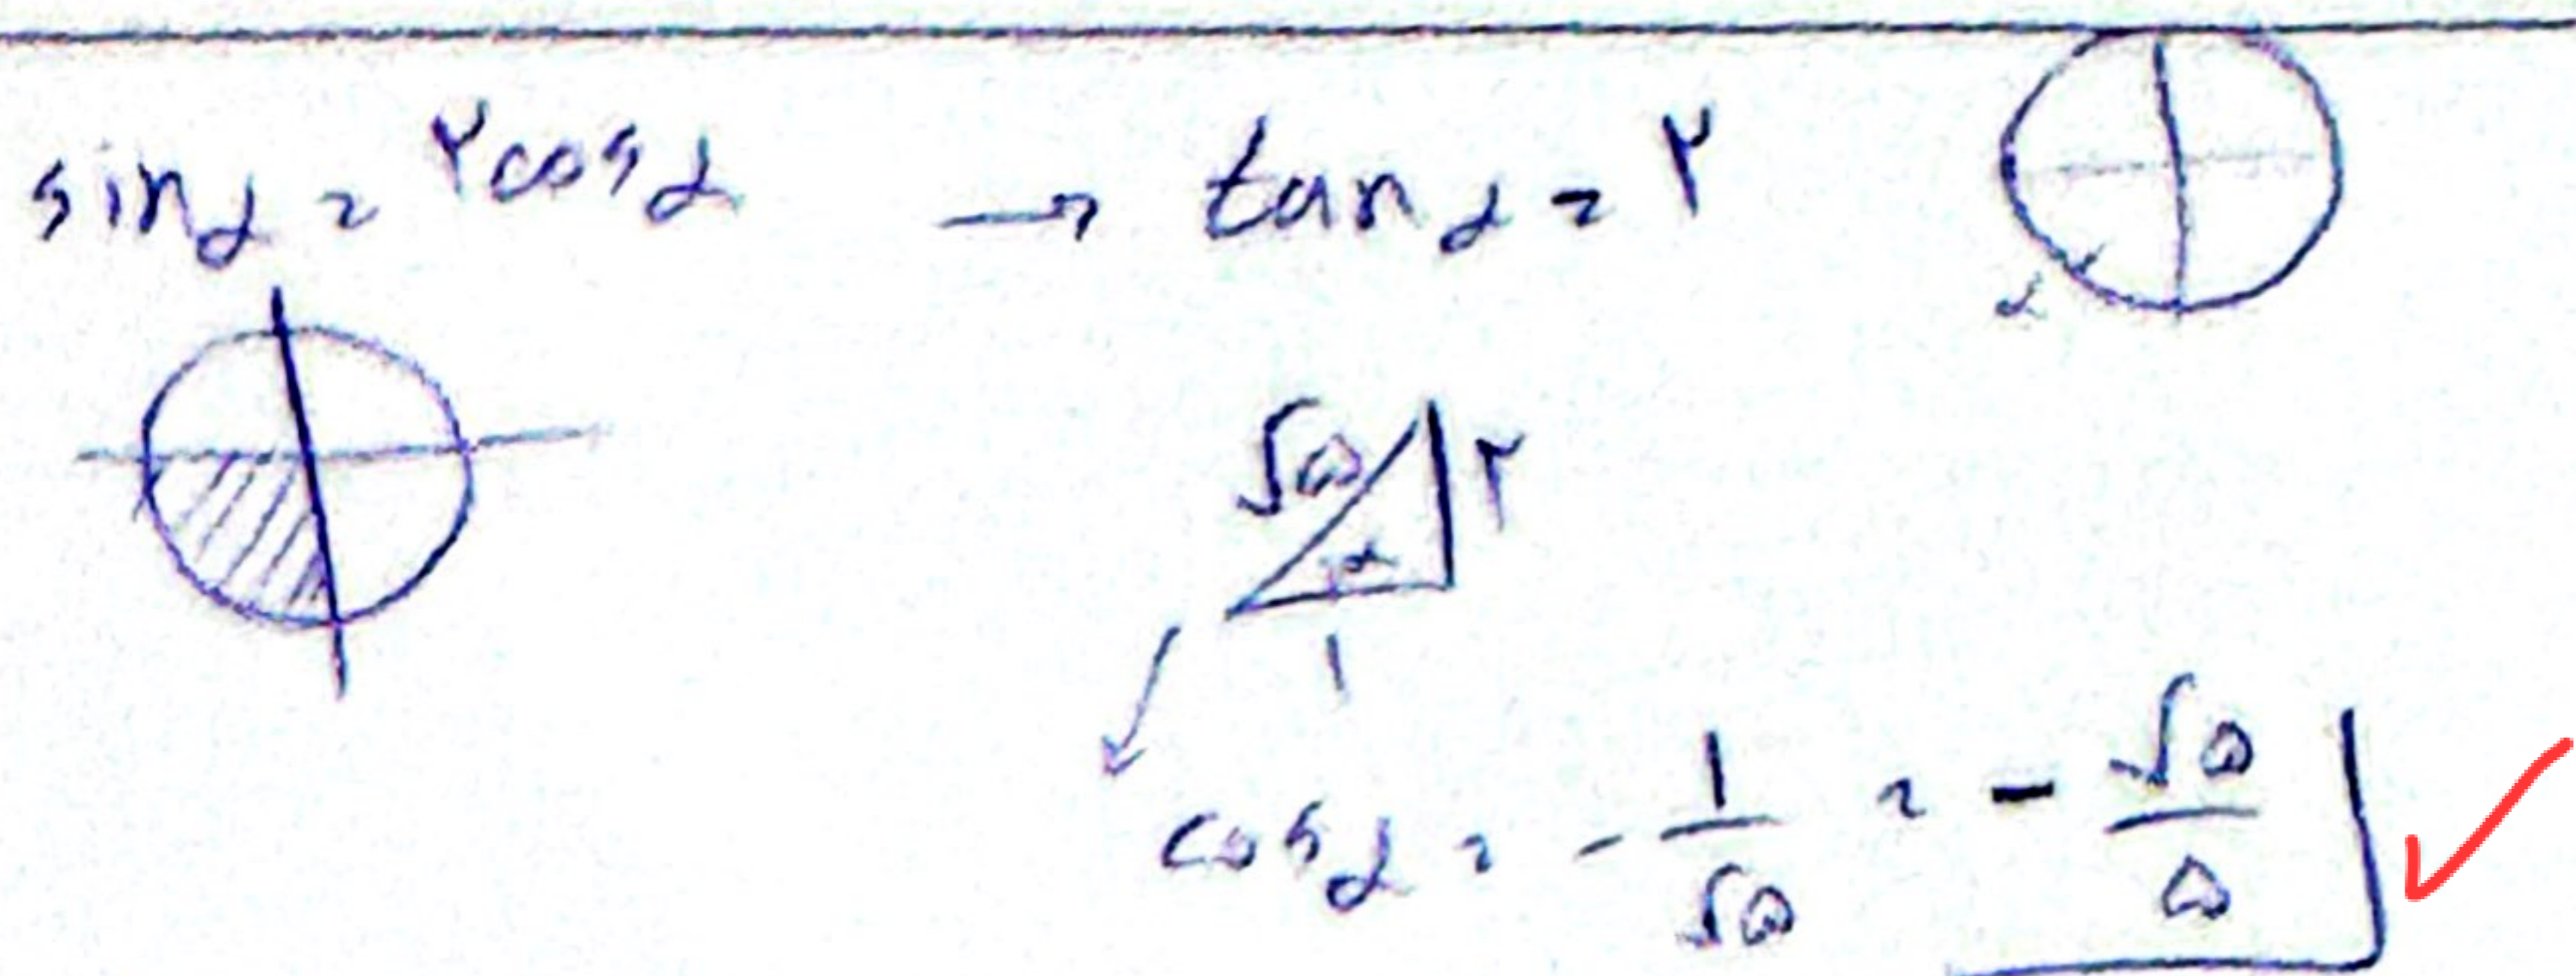 sin α = ۲cos α → tan α = ۲
α
√۵ ۲
α
۱
cos α = - ۱/√۵ = - √۵/۵